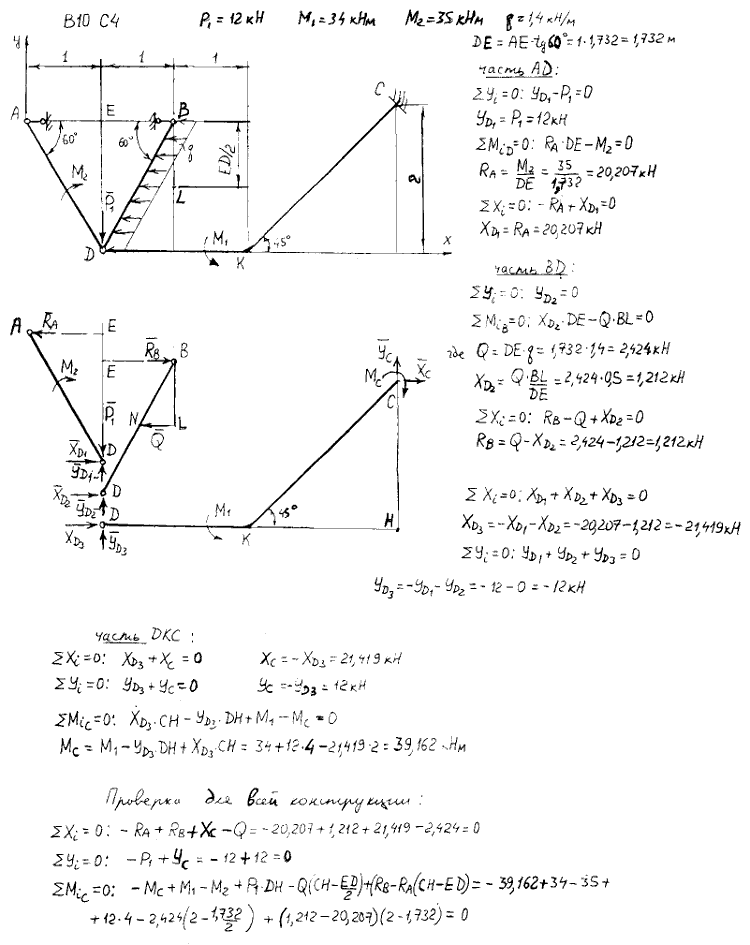 В10 С4 P₁ = 12 кН M₁ = 34 кНм M₂ = 35 кНм q = 1,4 кН/м
DE = AE·tg60° = 1·1,732 = 1,732 м
y
1 1 1
A E B C
60° 60° q ED/2 2
M₂ P̄₁ L
D M₁ K 45° x
часть AD:
ΣYi = 0: YD₁ - P₁ = 0
YD₁ = P₁ = 12 кН
ΣMiD = 0: RA·DE - M₂ = 0
RA = M₂/DE = 35/1,732 = 20,207 кН
ΣXi = 0: -RA + XD₁ = 0
XD₁ = RA = 20,207 кН
часть BD:
ΣYi = 0: YD₂ = 0
ΣMiB = 0: XD₂·DE - Q·BL = 0
где Q = DE·q = 1,732·1,4 = 2,424 кН
XD₂ = Q·BL/DE = 2,424·0,5 = 1,212 кН
ΣXi = 0: RB - Q + XD₂ = 0
RB = Q - XD₂ = 2,424 - 1,212 = 1,212 кН
A R̄A E
E R̄B B
M₂ P̄₁ N Q̄ L
ȲC X̄C MC C
X̄D₁ D ȲD₁
X̄D₂ D ȲD₂
D XD₃ ȲD₃ M₁ K 45° H
ΣXi = 0: XD₁ + XD₂ + XD₃ = 0
XD₃ = -XD₁ - XD₂ = -20,207 - 1,212 = -21,419 кН
ΣYi = 0: YD₁ + YD₂ + YD₃ = 0
YD₃ = -YD₁ - YD₂ = -12 - 0 = -12 кН
часть DKC:
ΣXi = 0: XD₃ + XC = 0 XC = -XD₃ = 21,419 кН
ΣYi = 0: YD₃ + YC = 0 YC = -YD₃ = 12 кН
ΣMiC = 0: XD₃·CH - YD₃·DH + M₁ - MC = 0
MC = M₁ - YD₃·DH + XD₃·CH = 34 + 12·4 - 21,419·2 = 39,162 Нм
Проверка для всей конструкции:
ΣXi = 0: -RA + RB + XC - Q = -20,207 + 1,212 + 21,419 - 2,424 = 0
ΣYi = 0: -P₁ + YC = -12 + 12 = 0
ΣMiC = 0: -MC + M₁ - M₂ + P₁·DH - Q(CH - ED/2) + (RB - RA(CH - ED) = -39,162 + 34 - 35 +
+ 12·4 - 2,424(2 - 1,732/2) + (1,212 - 20,207)(2 - 1,732) = 0